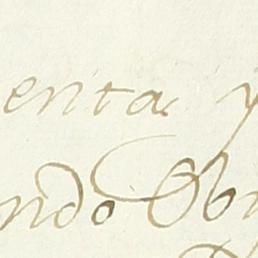 enta y
ndo Ob